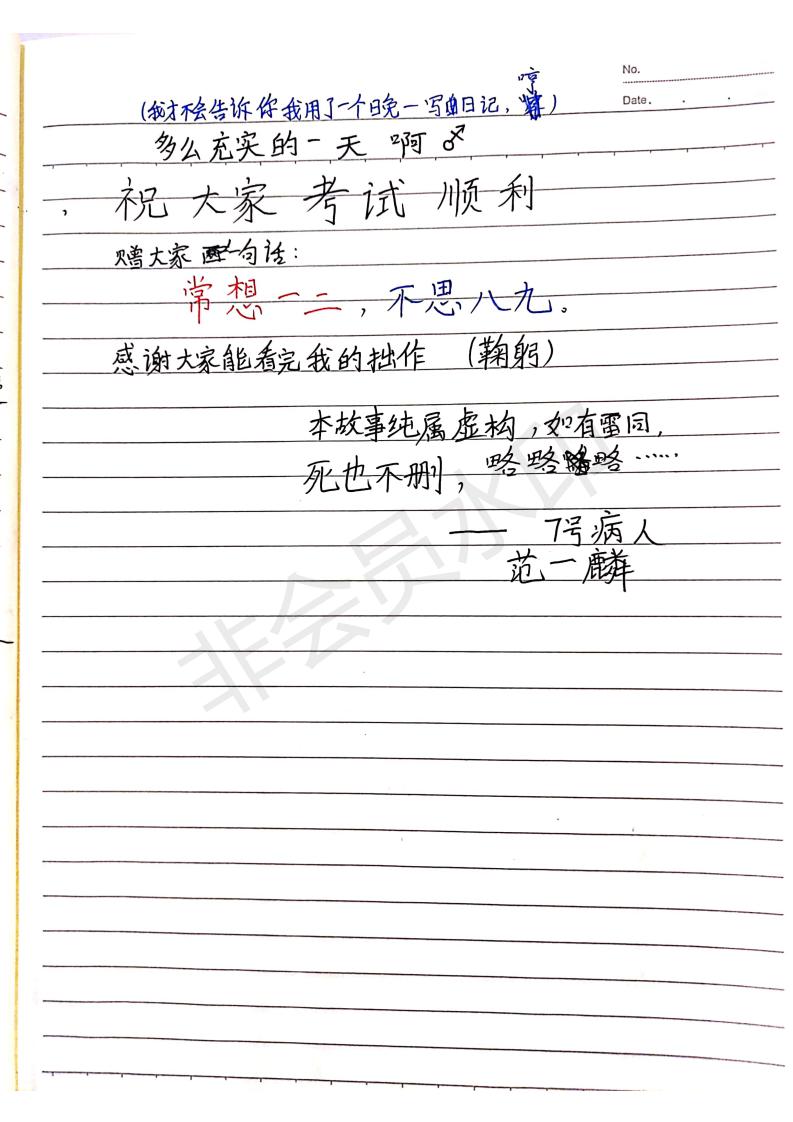 No.
Date.
(我才不会告诉你我用了一个日免一写日记,哼)
多么充实的一天 啊♂
祝大家考试顺利
赠大家一句话:
常想一二,不思八九。
感谢大家能看完我的拙作 (鞠躬)
本故事纯属虚构,如有雷同,
死也不删,略略略……
—— 7号病人
范一麟
非会员水印